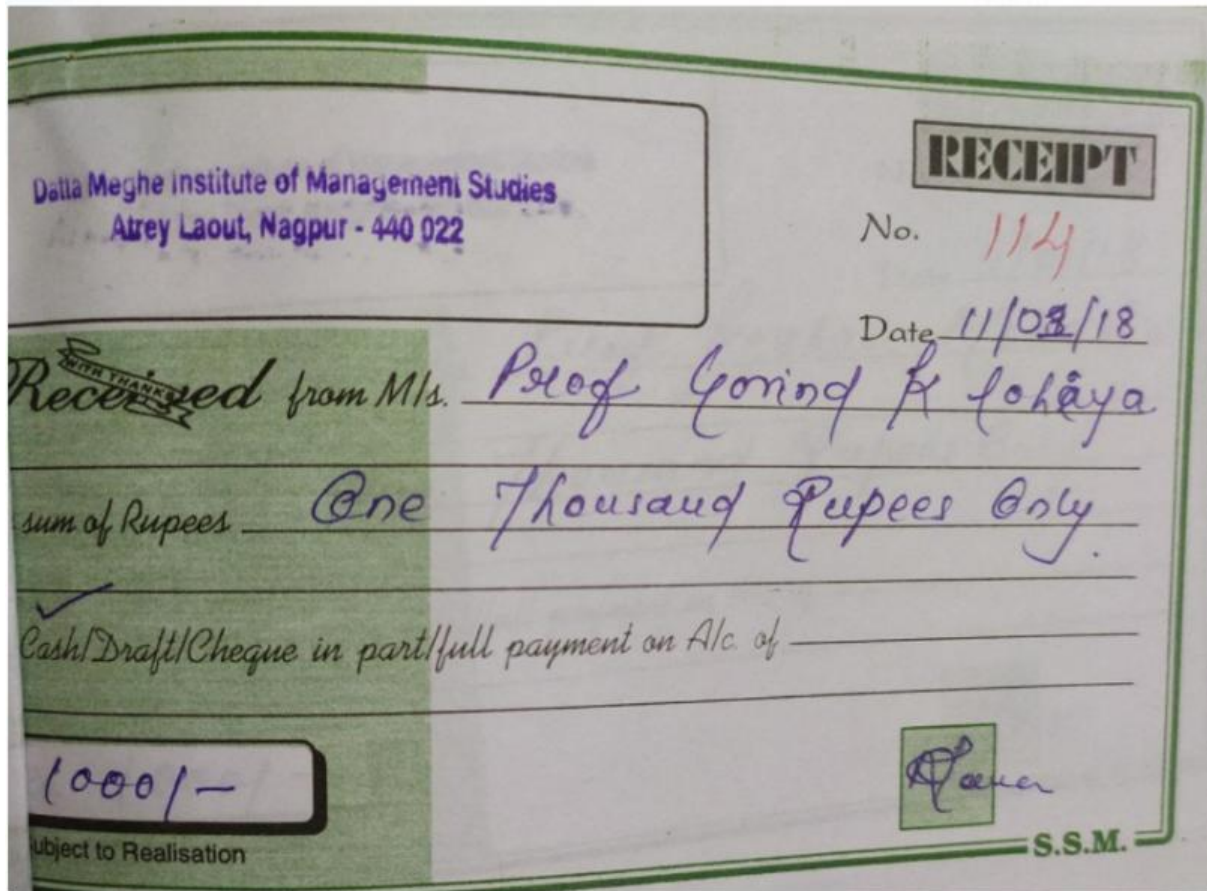 Datta Meghe Institute of Management Studies
Atrey Laout, Nagpur - 440 022
RECEIPT
No. 114
Date 11/03/18
WITH THANKS
Received from M/s. Prof Govind K Lohiya
sum of Rupees One Thousand Rupees Only.
Cash/Draft/Cheque in part/full payment on A/c. of
1000/-
ubject to Realisation
S.S.M.